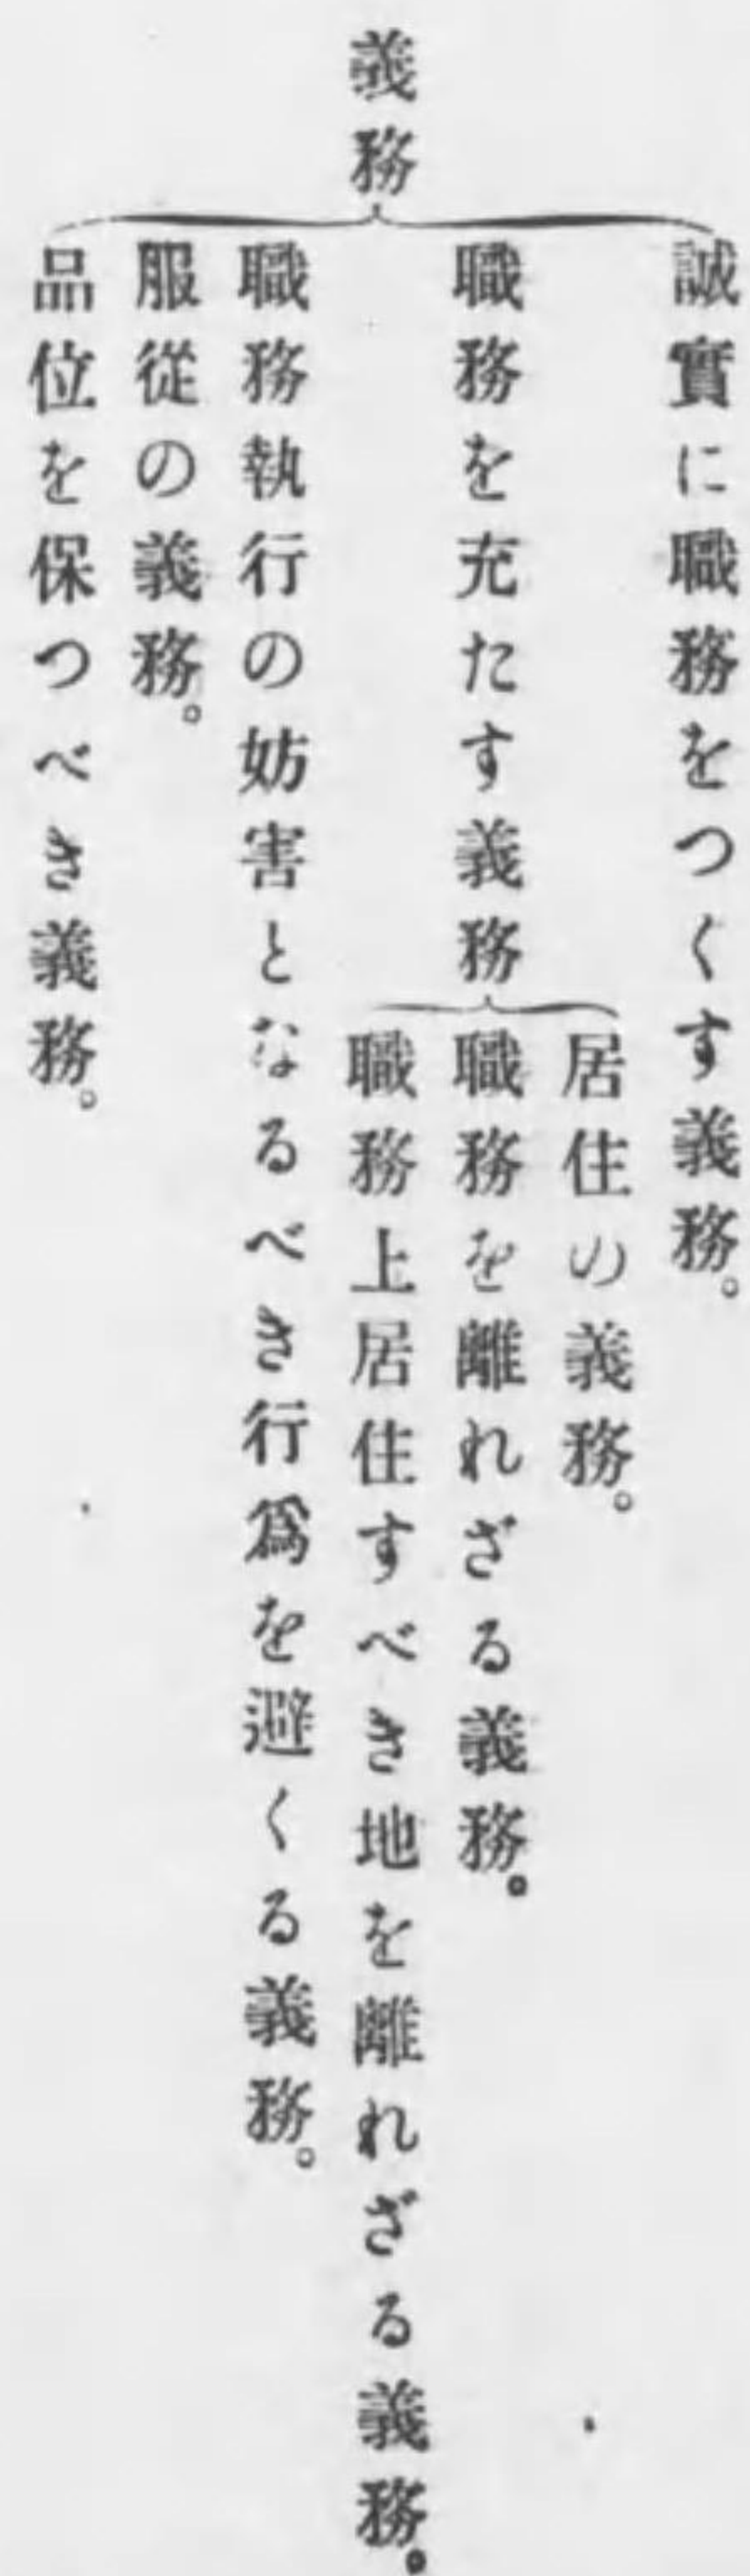 義務
誠實に職務をつくす義務。
職務を充たす義務
居住の義務。
職務を離れざる義務。
職務上居住すべき地を離れざる義務。
職務執行の妨害となるべき行爲を避くる義務。
服從の義務。
品位を保つべき義務。